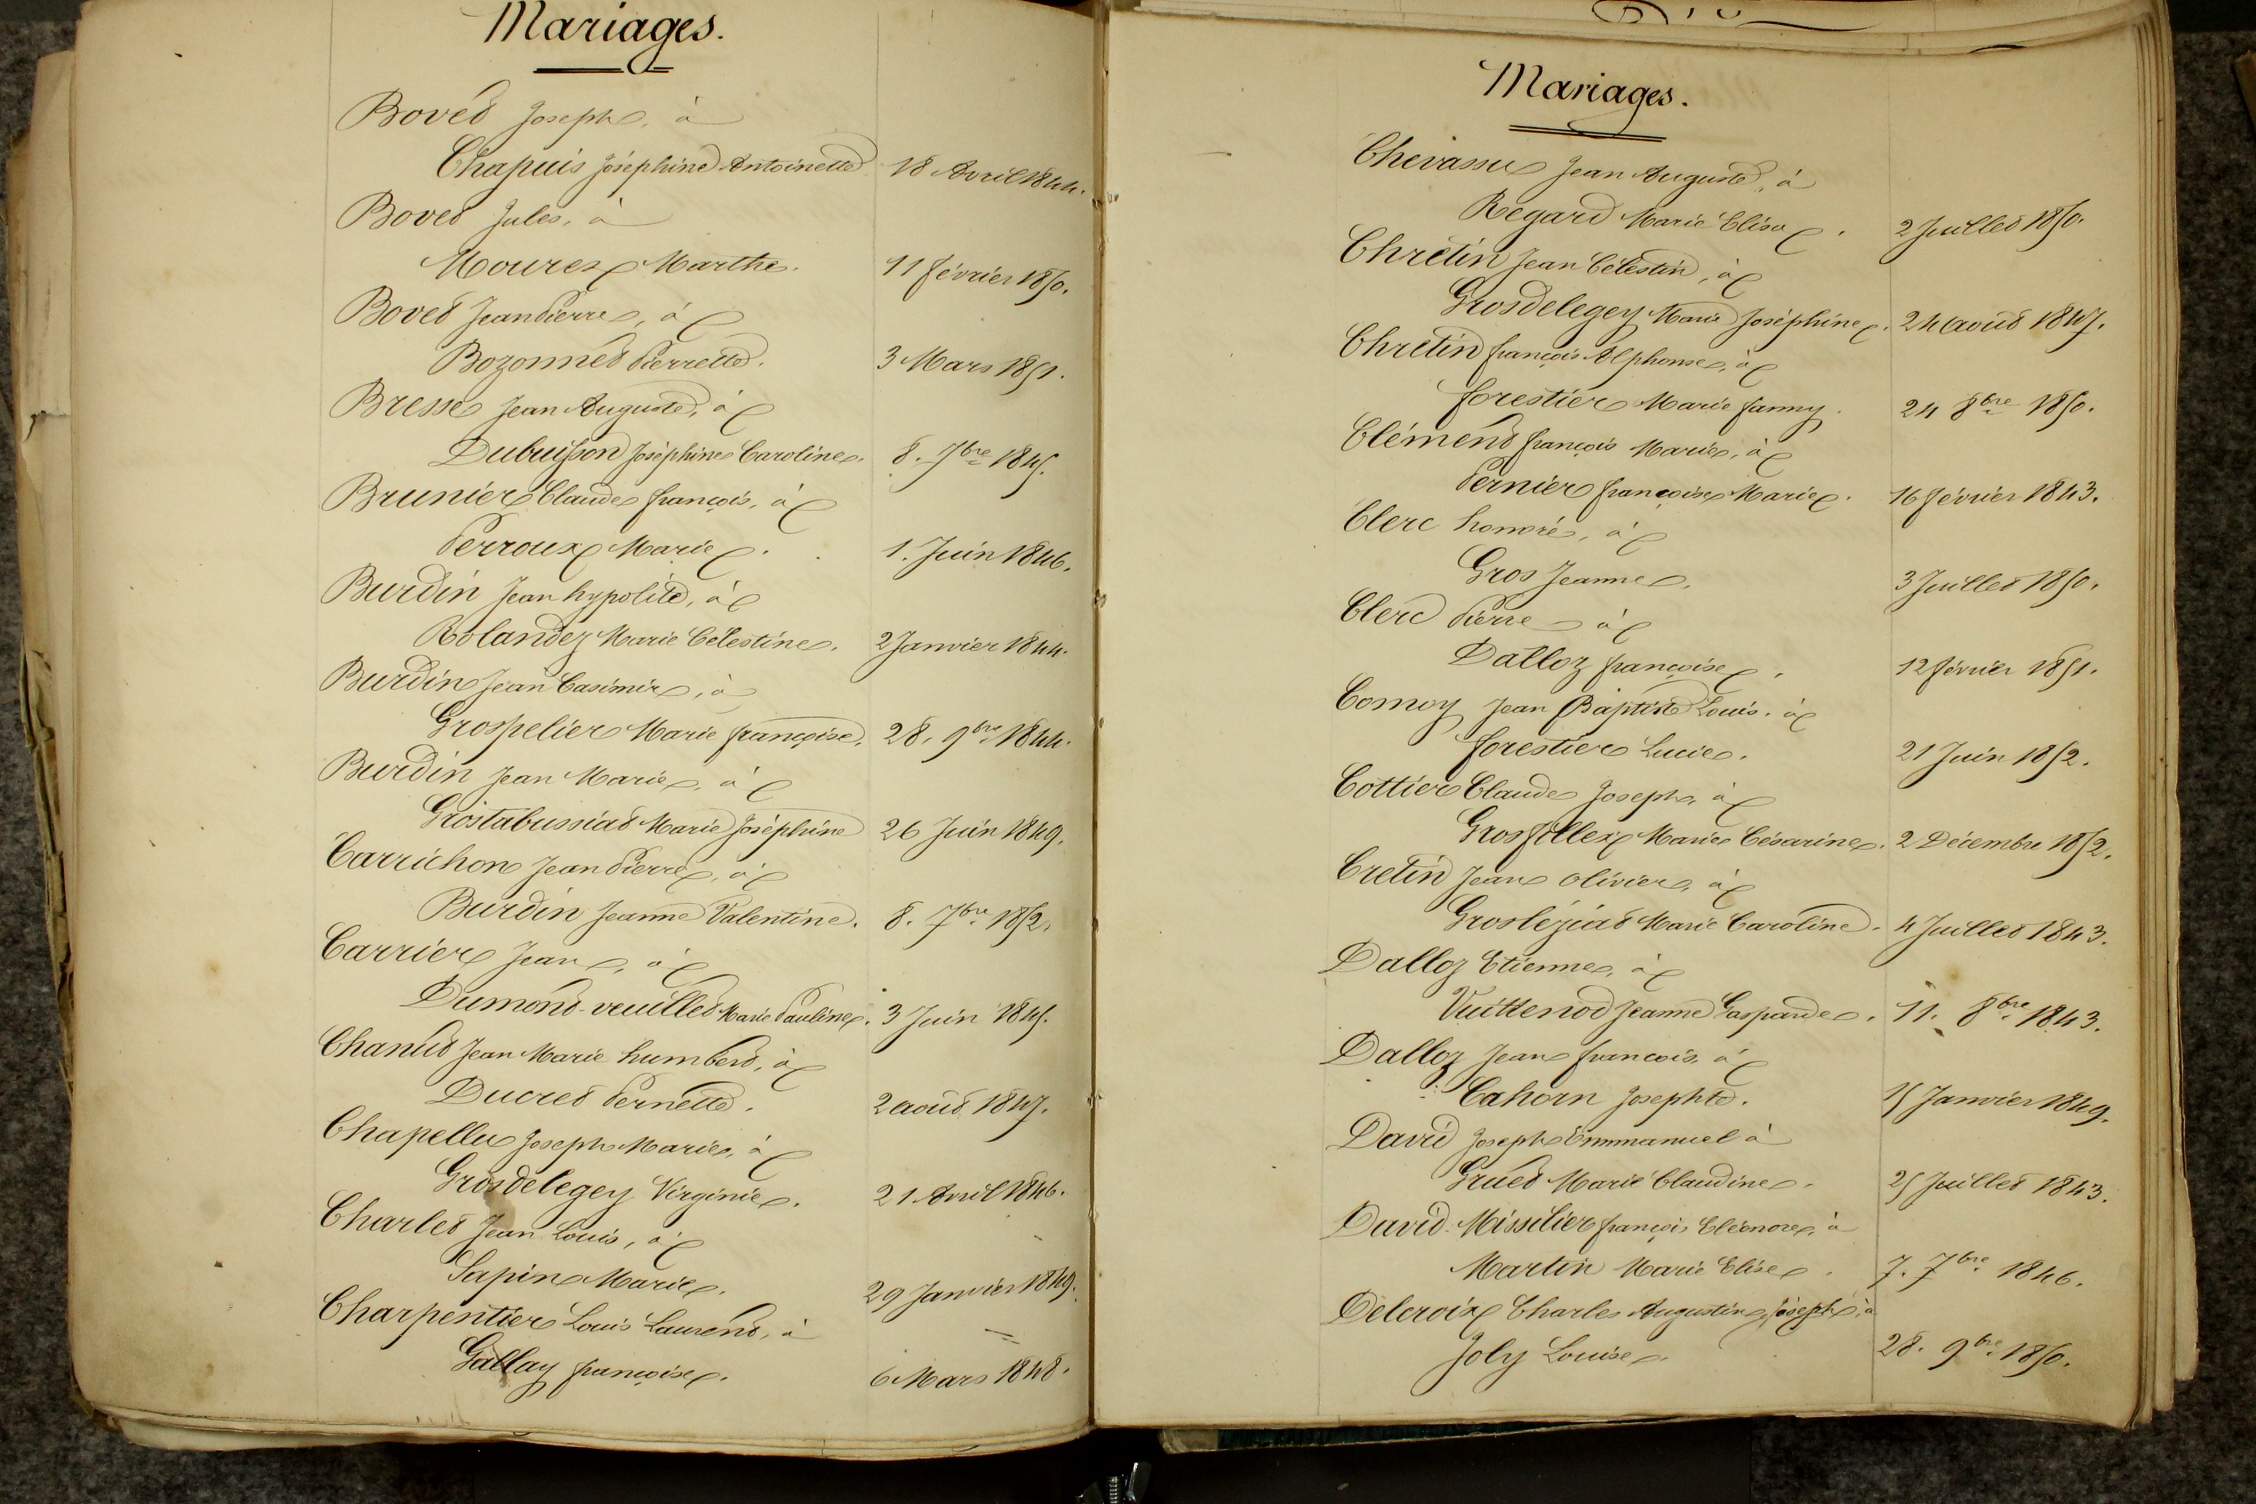 Mariages.
Bovet Joseph, à
Chapuis Joséphine Antoinette 18 Avril 1844.
Bovet Jules, à
Mourex Marthe. 11 février 1850.
Bovet Jean Pierre, à
Bozonnet Pierrette. 3 Mars 1851.
Bresse Jean Auguste, à
Dubuisson Joséphine Caroline. 8. 7bre 1845.
Brunier Claude françois, à
Perroux Marie. 1. Juin 1846.
Burdin Jean hypolite, à
Rolandez Marie Célestine. 2 Janvier 1844.
Burdin Jean Casimir, à
Grospelier Marie françoise. 28. 9bre 1844.
Burdin Jean Marie, à
Grostabussiat Marie Joséphine 26 Juin 1849.
Carrichon Jean Pierre, à
Burdin Jeanne Valentine. 8. 7bre 1852.
Carrier Jean, à
Dumont-veuillet Marie Pauline. 3 Juin 1845.
Chanut Jean Marie humbert, à
Ducret Pernette. 2 août 1847.
Chapellu Joseph Marie, à
Grosdelegey Virginie. 21 Avril 1846.
Charlet Jean Louis, à
Sapin Marie. 29 Janvier 1849.
Charpentier Louis Laurent, à
Gallay françoise. 6 Mars 1848.
Mariages.
Chevassu Jean Auguste, à
Regard Marie Elisa. 2 Juillet 1850.
Chrétin Jean Célestin, à
Grosdelegey Marie Joséphine. 24 août 1847.
Chrétin françois Alphonse, à
forestier Marie fanny. 24 8bre 1850.
Clément françois Marie, à
Pernier françoise Marie. 16 février 1843.
Clerc honoré, à
Gros Jeanne. 3 Juillet 1850.
Clerc Pierre à
Dalloz françoise. 12 février 1851.
Comoy Jean Baptiste Louis, à
forestier Lucie. 21 Juin 1852.
Cottier Claude Joseph, à
Grosfillex Marie Césarine. 2 Décembre 1852.
Cretin Jean olivier, à
Grosléziat Marie Caroline. 4 Juillet 1843.
Dalloz Etienne, à
Vuittenod Jeanne Gasparde. 11. 8bre 1843.
Dalloz Jean francois, à
Cahorn Josephte. 15 Janvier 1849.
David Joseph Emmanuel à
Gruet Marie Claudine. 25 Juillet 1843.
David-Missilier françois Eléonore, à
Martin Marie Elise. 7. 7bre 1846.
Delcroix Charles Augustin Joseph, à
Joly Louise. 28. 9bre 1850.